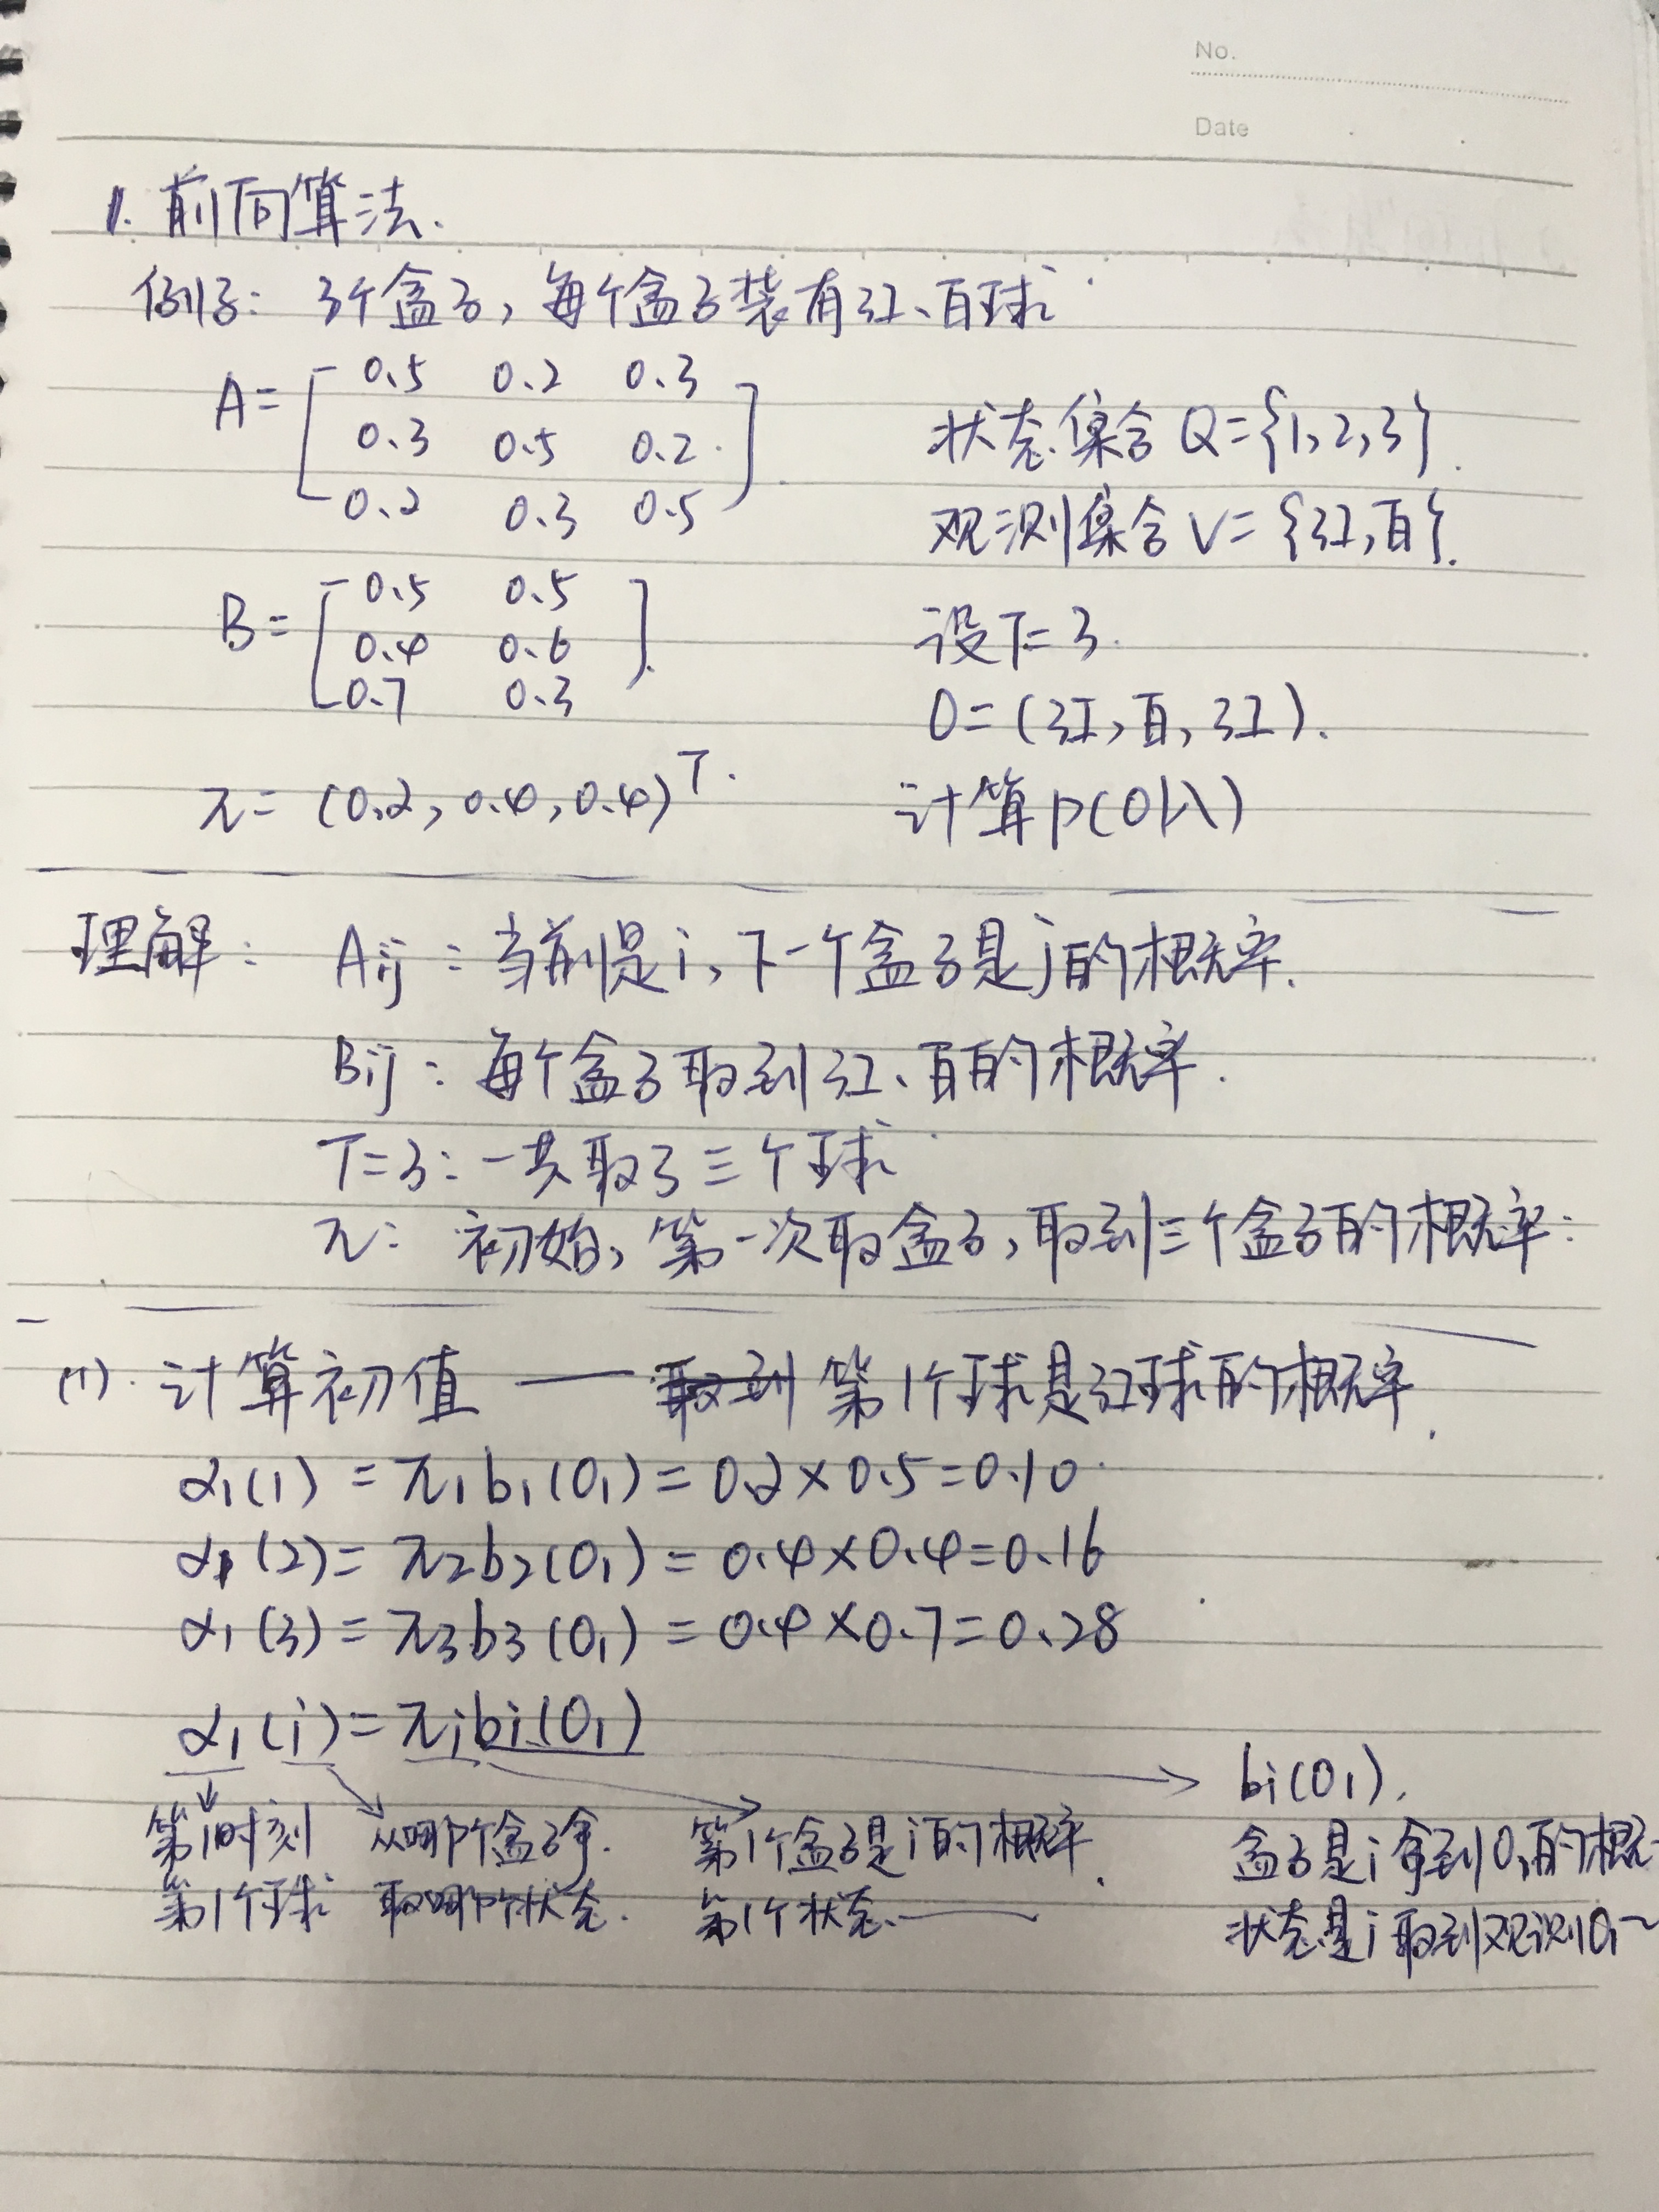 No.
Date
1. 前向算法.
例子: 3个盒子, 每个盒子装有红、白球.
A = [ 0.5 0.2 0.3
0.3 0.5 0.2
0.2 0.3 0.5 ]
状态集合 Q={1,2,3}.
观测集合 V={红,白}.
B = [ 0.5 0.5
0.4 0.6
0.7 0.3 ].
设T=3.
O=(红,白,红).
π = (0.2, 0.4, 0.4)^T.
计算 P(O|λ)
理解: Aij: 当前是i, 下一个盒子是j的概率.
Bij: 每个盒子取到红、白的概率.
T=3: 一共取了三个球.
π: 初始, 第一次取盒子, 取到三个盒子的概率:
(1). 计算初值 — 取到 第1个球是红球的概率.
α1(1) = π1b1(O1) = 0.2×0.5=0.10
α1(2) = π2b2(O1) = 0.4×0.4=0.16
α1(3) = π3b3(O1) = 0.4×0.7=0.28
α1(i) = πibi(O1)
→ bi(O1).
第1时刻 从哪个盒子拿. 第1个盒子是i的概率. 盒子是i拿到O1的概
第1个球 取哪个状态. 第1个状态—— 状态是i取到观测O1~